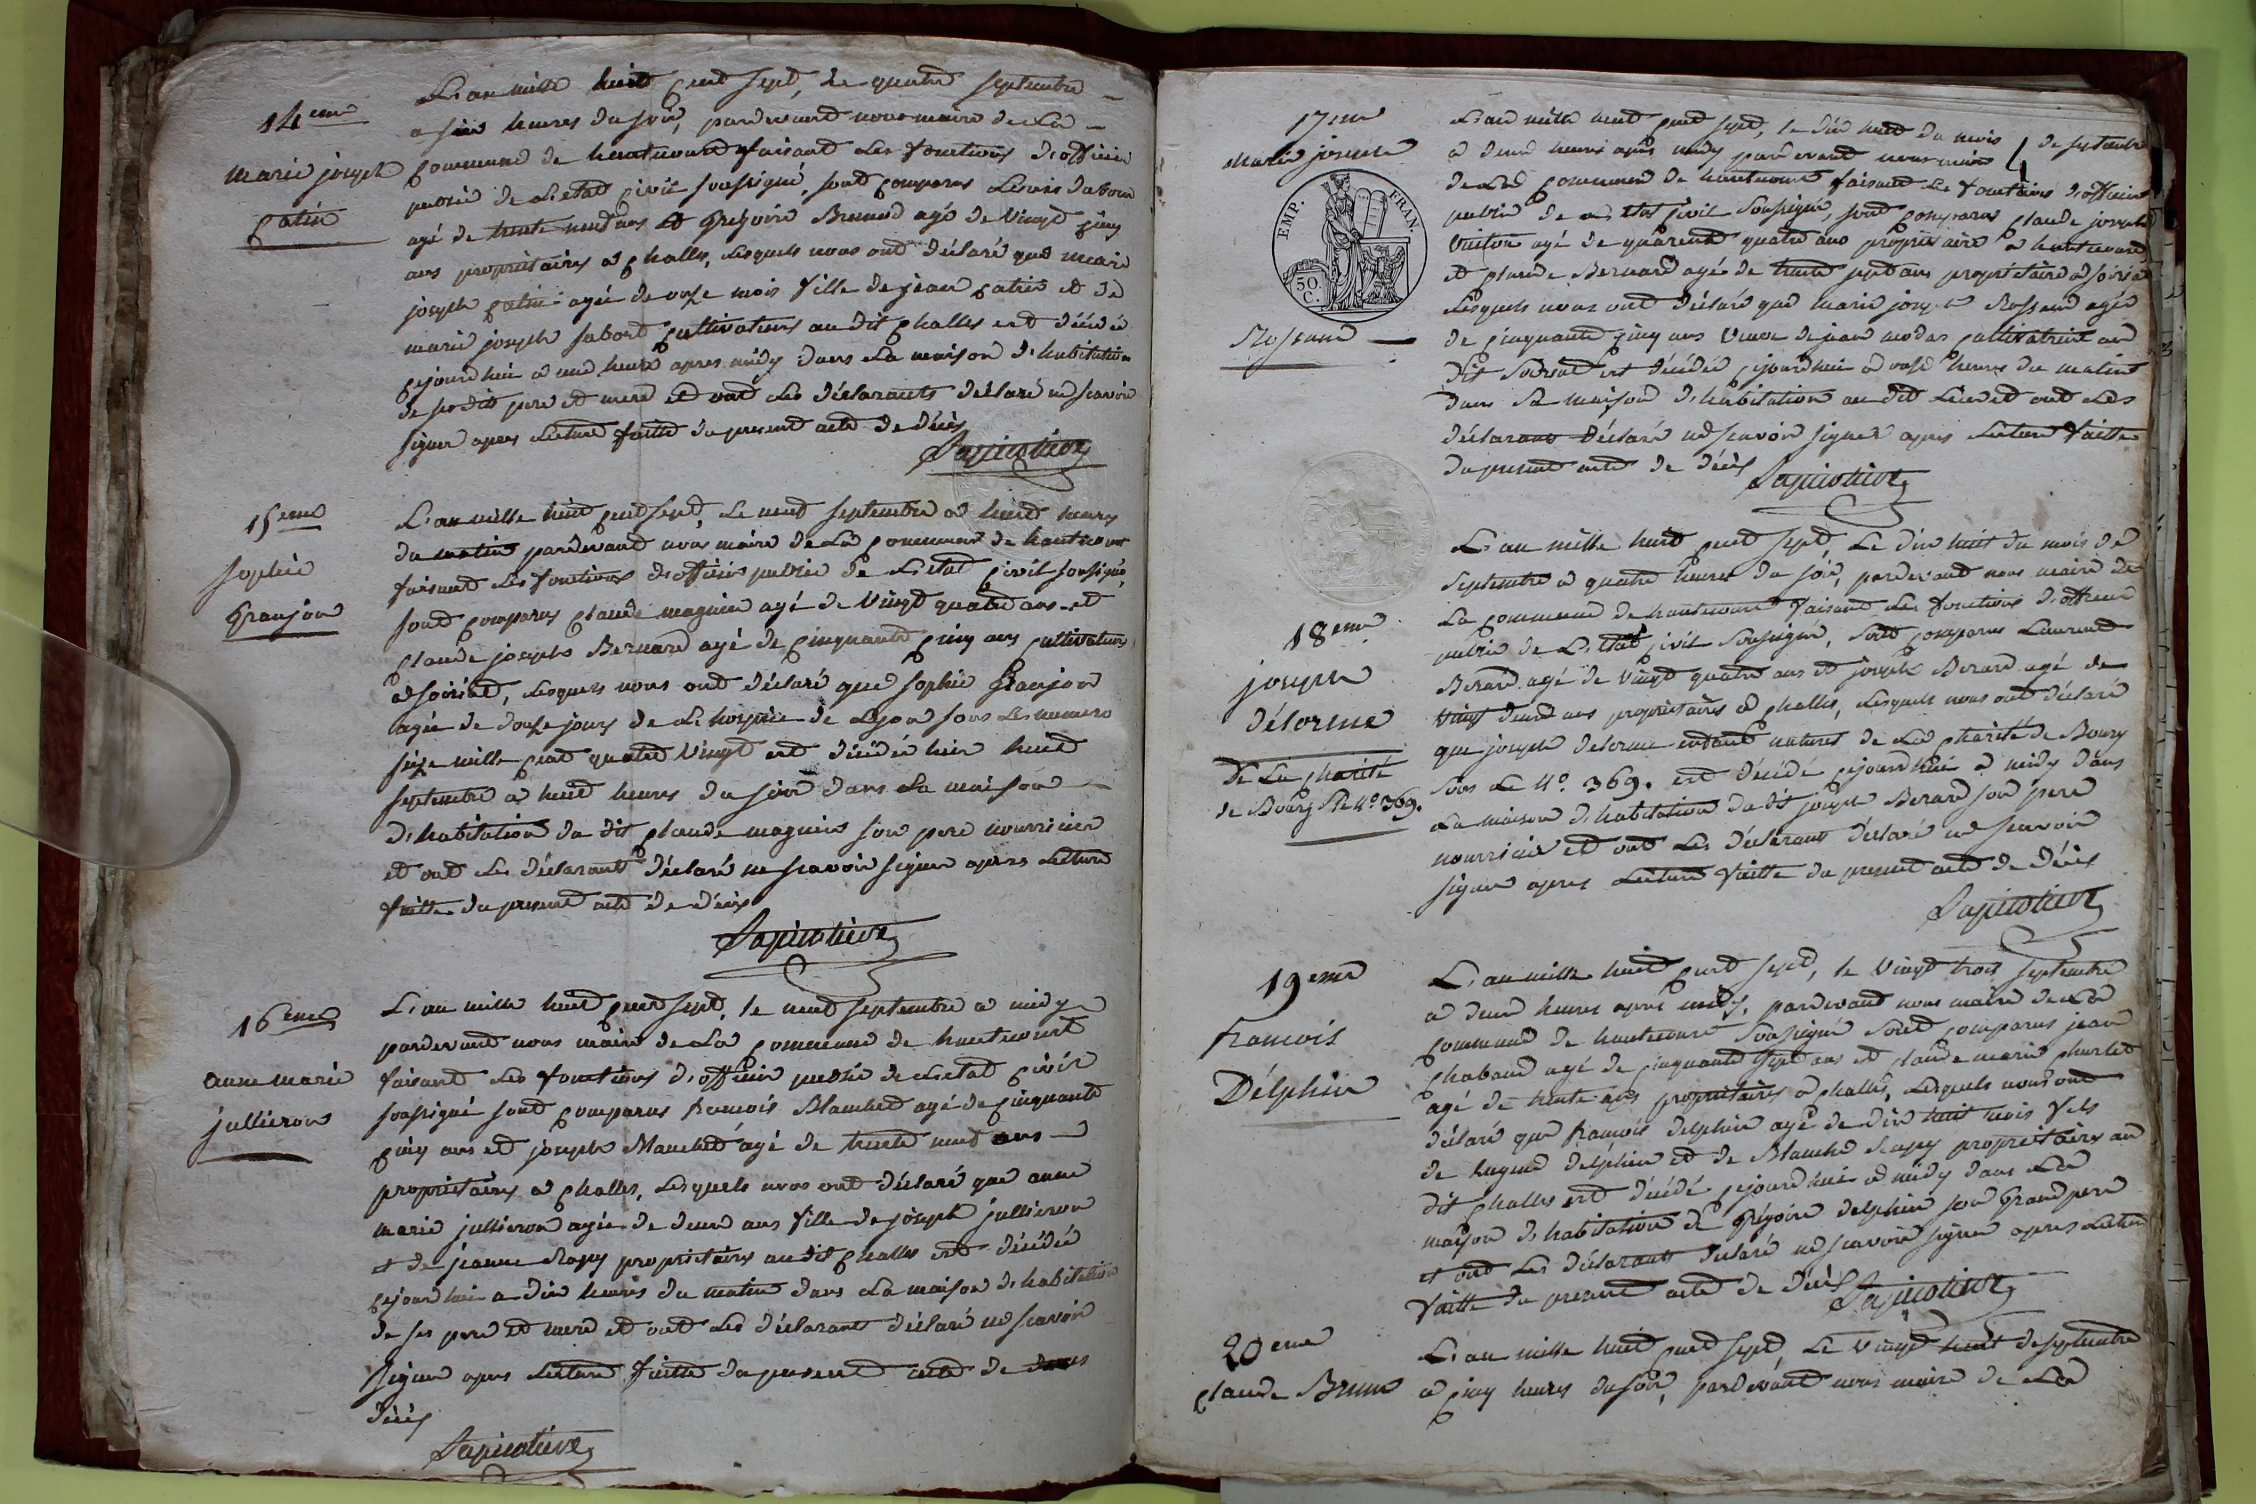 14eme
marie joseph
catin
L'an mille huit cent sept, le quatre septembre
a six heures du soir, pardevant nous maire de La
commune de hautecourt faisant Les fonctions d'officier
public de L'etat civil soussigné, sont comparus Louis dabord
agé de trente neuf ans et Grégoire Brunod agé de vingt cinq
ans propriétaires a challes, Lesquels nous ont déclaré que marie
joseph catin agée de onze mois fille de jean catin et de
marie joseph sabord cultivateurs au dit challes est décédé
cejourdhui a une heure apres midy dans La maison d'habitation
de ses dits pere et mere et ont Les déclarants déclaré ne scavoir
signer apres Lecture faitte du present acte de décès
15eme
Sophie
Granjon
L'an mille huit cent sept, Le neuf septembre a huit heures
du matin pardevant nous maire de La commune de hautecourt
faisant Les fonctions d'officier public de L'etat civil soussigné,
sont comparus claude magnin agé de vingt quatre ans et
claude joseph Bernard agé de cinquante cinq ans cultivateurs
a soiriat, Lesquels nous ont déclaré que sophie Granjon
agée de douze jours de L'hospice de Lyon sous Les numero
seize mille cent quatre vingt est décédée hier huit
septembre a huit heures du soir dans La maison
d'habitation du dit claude magnin son pere nourricier
et ont Les déclarants déclaré ne scavoir signer apres Lecture
faitte du present acte de décès
16eme
anne marie
jullieron
L'an mille huit cent sept, le neuf septembre a midy
pardevant nous maire de La commune de hautecourt
faisant Les fonctions d'officier public de L'etat civil
soussigné sont comparus francois Blanchet agé de cinquante
cinq ans et joseph Blanchet agé de trente neuf ans
propriétaires a challes, Lesquels nous ont déclaré que anne
marie jullieron agée de deux ans fille de joseph jullieron
et de jeanne Rapy propriétaires au dit challes est décédée
cejourdhui a dix heures du matin dans La maison d'habitation
de ses pere et mere et ont Les déclarants déclaré ne scavoir
signer apres Lecture faitte du present acte de
décès
17eme
marie joseph
EMP. FRAN.
50. C.
L'an mille huit cent sept, le dix huit du mois de septembre
a deux heures apres midy pardevant nous maire
de La commune de hautecourt faisant Les fonctions d'officier
public de L'etat civil soussigné, sont comparus claude joseph
agé de quarente quatre ans propriétaire a hautecourt
et claude Bernard agé de trente sept ans propriétaire a soiriat
Lesquels nous ont déclaré que marie joseph agée
de cinquante cinq ans veuve de jean cultivatrice au
dit soiriat est décédée cejourdhui a onze heures du matin
dans sa maison d'habitation au dit Lieu et ont Les
déclarants déclaré ne scavoir signer apres Lecture faitte
du present acte de décès
18eme
joseph
délorme
de La charité
de Bourg N° 369.
L'an mille huit cent sept, Le dix huit du mois de
septembre a quatre heures du soir, pardevant nous maire de
La commune de hautecourt faisant Les fonctions d'officier
public de L'etat civil soussigné, sont comparus Laurent
Berard agé de vingt quatre ans et joseph Berard agé de
vingt deux ans propriétaires a challes, Lesquels nous ont déclaré
que joseph delorme enfant naturel de La charité de Bourg
sous Le N° 369. est décédé cejourdhui a midy dans
La maison d'habitation du dit joseph Berard son pere
nourricier et ont Les déclarants déclaré ne scavoir
signer apres Lecture faitte du present acte de décès
19eme
francois
Délphin
L'an mille huit cent sept, le vingt trois septembre
a deux heures apres midy, pardevant nous maire de La
commune de hautecourt soussigné sont comparus jean
chabaud agé de cinquante sept ans et claude marie
agé de trente ans propriétaires a challes, Lesquels nous ont
déclaré que francois delphin agé de dix huit mois fils
de hugues delphin et de Blanche Rapy propriétaires au
dit challes est décédé cejourdhui a midy dans La
maison d'habitation de Grégoire delphin son Grand pere
et ont Les déclarants déclaré ne scavoir signer apres Lecture
faitte du present acte de décès
20eme
claude Brun
L'an mille huit cent sept, Le vingt huit de septembre
a cinq heures du soir, pardevant nous maire de La